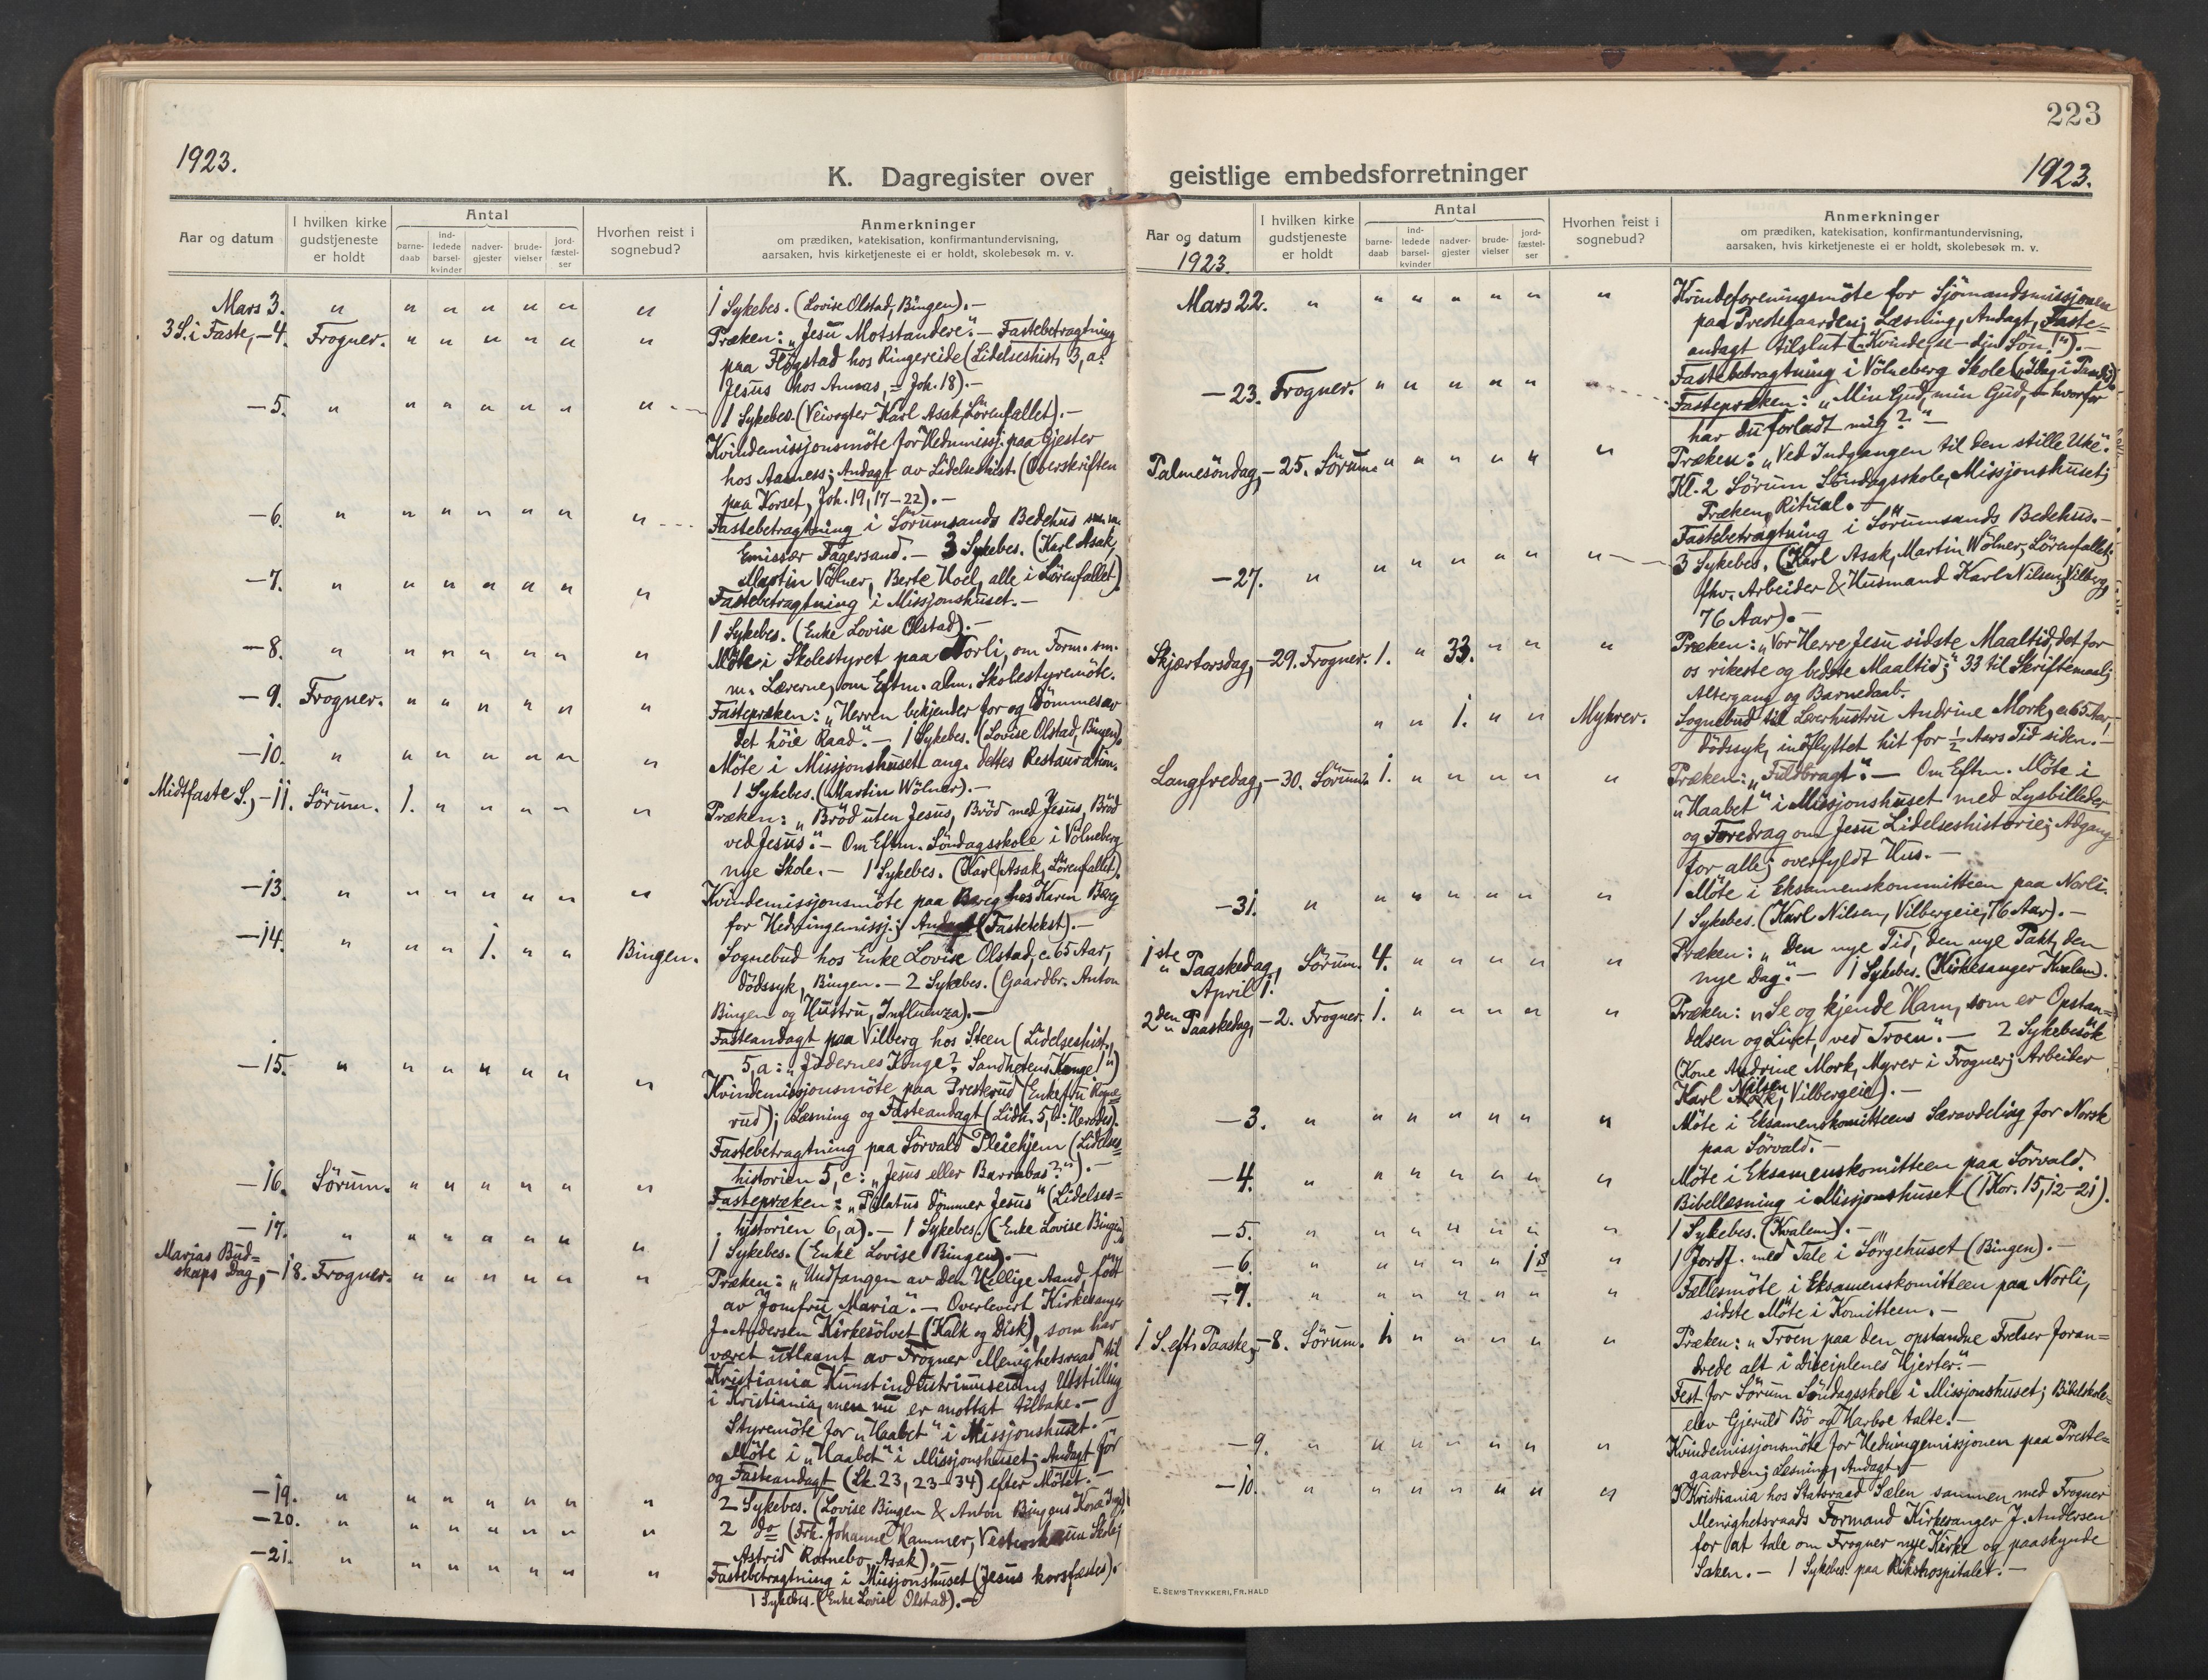 223
1923.
K. Dagregister over geistlige embedsforretninger
1923.
Aar og datum
I hvilken kirke gudstjeneste er holdt
Antal
barne-daab
ind-ledede barsel-kvinder
nadver-gjester
brude-vielser
jord-fæstel-ser
Hvorhen reist i sognebud?
Anmerkninger
om prædiken, katekisation, konfirmantundervisning,
aarsaken, hvis kirketjeneste ei er holdt, skolebesøk m. v.
Mars 3. " " " " " " " 1 Sykebes. (Lovise Olstad, Bingen). —
3 S. i Faste, — 4. Frogner. " " " " " " Præken: „Jesu Motstandere". — Fastebetragtning
paa Flogstad hos Ringereide (Lidelseshist. 3, a:
Jesus hos Annas, = Joh. 18). —
— 5. " " " " " " " 1 Sykebes. (Veivogter Karl Asak, Sörenfallet). —
Kvindemissjonsmöte for Hedmissj. paa Gjester
hos Aamess; Andagt av Lidelseshist. (Overskriften
paa Korset, Joh. 19, 17—22). —
— 6. " " " " " " " Fastebetragtning i Sörumsands Bedehus
Emissær Fagersand. — 3 Sykebes. (Karl Asak,
Martin Völner, Berte Hoel, alle i Sörenfallet).
— 7. " " " " " " " Fastebetragtning i Missjonshuset. —
1 Sykebes. (Enke Lovise Olstad). —
— 8. " " " " " " " Möte i Skolestyret paa Norli, om Form. sm.
m. Lærerne, om Eftm. alm. Skolestyremöte.
— 9. Frogner. " " " " " " Fastepræken: „Herren bekjender for og dömmes av
det höie Raad". — 1 Sykebes. (Lovise Olstad, Bingen).
— 10. " " " " " " " Möte i Missjonshuset ang. dettes Restauration.
1 Sykebes. (Martin Wölner). —
Midtfaste S., — 11. Sörum. 1. " " " " " Præken: „Bröd uten Jesus, Bröd med Jesus, Bröd
ved Jesus". — Om Eftm. Söndagsskole i Völneberg
nye Skole. — 1 Sykebes. (Karl Asak, Sörenfallet).
— 13. " " " " " " " Kvindemissjonsmöte paa Berg hos Karen Berg
for Hedningemissj.; Andagt (Fastetekst). —
— 14. " " " 1. " " Bingen. Sognebud hos Enke Lovise Olstad, c. 65 Aar,
dödssyk, Bingen. — 2 Sykebes. (Gaardbr. Anton
Bingen og Hustru, Influenza). —
Fasteandagt paa Vilberg hos Steen (Lidelseshist.,
5, a: „Jödernes Konge? Sandhetens Konge!")
— 15. " " " " " " " Kvindemissjonsmöte paa Presterud (Enkefru Rogne-
rud); Læsning og Fasteandagt (Lidh. 5, b: Herodes).
Fastebetragtning paa Sörvald Pleiehjem (Lidelses-
historien 5, c: „Jesus eller Barrabas?"). —
— 16. Sörum. " " " " " " Fastepræken: „Pilatus dömmer Jesus" (Lidelses=
historien 6, a). — 1 Sykebes. (Enke Lovise Bingen)
— 17. " " " " " " " 1 Sykebes. (Enke Lovise Bingen). —
Marias Bud=
skaps Dag, — 18. Frogner. " " " " " " Præken: „Undfangen av den Hellige Aand, födt
av Jomfru Maria". — Overlevert Kirkesanger
J. Andersen Kirkesölvet (Kalk og Disk), som har
været utlaant av Frogner Menighetsraad til
Kristiania Kunstindustrimuseums Utstilling
i Kristiania, men nu er mottat tilbake. —
Styremöte for „Haabet" i Missjonshuset. —
Möte i „Haabet" i Missjonshuset; Andagt för
og Fasteandagt (Lk. 23, 23—34) efter Mötet. —
— 19. " " " " " " " 2 Sykebes. (Lovise Bingen & Anton Bingens Kone
— 20. " " " " " " " 2 do (Frk. Johanne Hammer, Skole;
Astrid Rotnebo, Asak). —
— 21. " " " " " " " Fastebetragtning i Missjonshuset (Jesus korsfæstes).
1 Sykebes. (Enke Lovise Olstad). —
Aar og datum
1923.
I hvilken kirke gudstjeneste er holdt
Antal
barne-daab
ind-ledede barsel-kvinder
nadver-gjester
brude-vielser
jord-fæstel-ser
Hvorhen reist i sognebud?
Anmerkninger
om prædiken, katekisation, konfirmantundervisning,
aarsaken, hvis kirketjeneste ei er holdt, skolebesøk m. v.
Mars 22. " " " " " " " Kvindeforeningsmöte for Sjömandsmissjonen
paa Prestegaarden; Læsning, Andagt, Faste=
andagt tilslut („Kvinde, se — din Sön!"). —
Fastebetragtning i Völneberg Skole („Idag i Paradis")
— 23. Frogner. " " " " " " Fastepræken: „Min Gud, min Gud, hvorfor
har du forladt mig?" —
Palmesöndag, — 25. Sörum. " " " " " " Præken: „Ved Indgangen til den stille Uke".
Kl. 2 Sörum Söndagsskole, Missjonshuset;
Præken, Ritual. —
Fastebetragtning i Sörumsands Bedehus. —
— 27. " " " " " " " 3 Sykebes. (Karl Asak, Martin Wölner, Sörenfallet;
fhv. Arbeider & Husmand Karl Nilsen, Vilberg,
76 Aar). —
Skjærtorsdag, — 29. Frogner. 1. " 33. " " " Præken: „Vor Herre Jesu sidste Maaltid, det for
os rikeste og bedste Maaltid"; 33 til Skriftemaal;
Altergang og Barnedaab.
" " 1. " " Myhrer. Sognebud til Leerhustru Andrine Mork, c. 65 Aar,
dödssyk, indflyttet hit for ½ Aars Tid siden. —
Langfredag, — 30. Sörum. 1. " " " " " Præken: „Fuldbragt". — Om Eftm. Möte i
„Haabet" i Missjonshuset med Lysbilleder
og Foredrag om Jesu Lidelseshistorie; Adgang
for alle; overfyldt Hus. —
— 31. " " " " " " " Möte i Eksamenskommitteen paa Norli.
1 Sykebes. (Karl Nilsen, Vilbergeie, 76 Aar). —
1ste Paaskedag, Sörum. 4. " " " " " Præken: „Den nye Tid, den nye Pakt, den
April 1. nye Dag". — 1 Sykebes. (Kirkesanger Kvalem).
2den Paaskedag, — 2. Frogner. 1. " " " " " Præken: „Se og kjende Ham, som er Opstan=
delsen og Livet, ved Troen". — 2 Sykebesök
(Kone Andrine Mork, Myrer i Frogner; Arbeider
Karl Nilsen, Vilbergeie). —
— 3. " " " " " " " Möte i Eksamenskomitteens Særavdeling for Norsk
paa Sörvald. —
— 4. " " " " " " " Möte i Eksamenskomitteen paa Sörvald.
Bibellæsning i Missjonshuset (1 Kor. 15, 12—21).
— 5. " " " " " " " 1 Sykebes. (Kvalem). —
— 6. " " " " " 1 " 1 Jordf. med Tale i Sörgehuset (Bingen). —
— 7. " " " " " " " Fællesmöte i Eksamenskomitteen paa Norli,
sidste Möte i Komitteen. —
1 S. eft. Paaske, — 8. Sörum. 1. " " " " " Præken: „Troen paa den opstandne Frelser foran=
drede alt i Disciplenes Hjerter". —
Fest for Sörum Söndagsskole i Missjonshuset; Bibelskole-
elev Gjerulf Bö og Harboe talte. —
— 9. " " " " " " " Kvindemissjonsmöte for Hedningemissjonen paa Preste=
gaarden; Læsning, Andagt. —
— 10. " " " " " " " I Kristiania hos Statsraad Sælen sammen med Frogner
Menighetsraads Formand Kirkesanger J. Andersen
for at tale om Frogner nye Kirke og paaskynde
Saken. — 1 Sykebes. paa Rikshospitalet. —
E. SEM'S TRYKKERI, FR.HALD